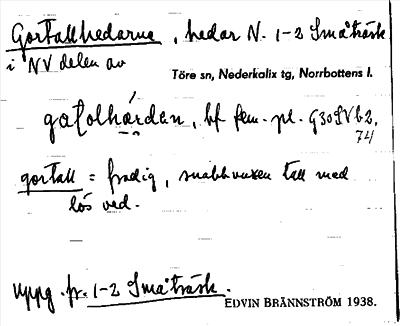 Gortallhedarna, hedar N. 1-2 Småträsk
i NV delen av
Töre sn, Nederkalix tg, Norrbottens l.
bf fem. pl.
74
gortall = frodig, snabbvuxen tall med
lös ved.
Uppg. fr. 1-2 Småträsk.
EDVIN BRÄNNSTRÖM 1938.